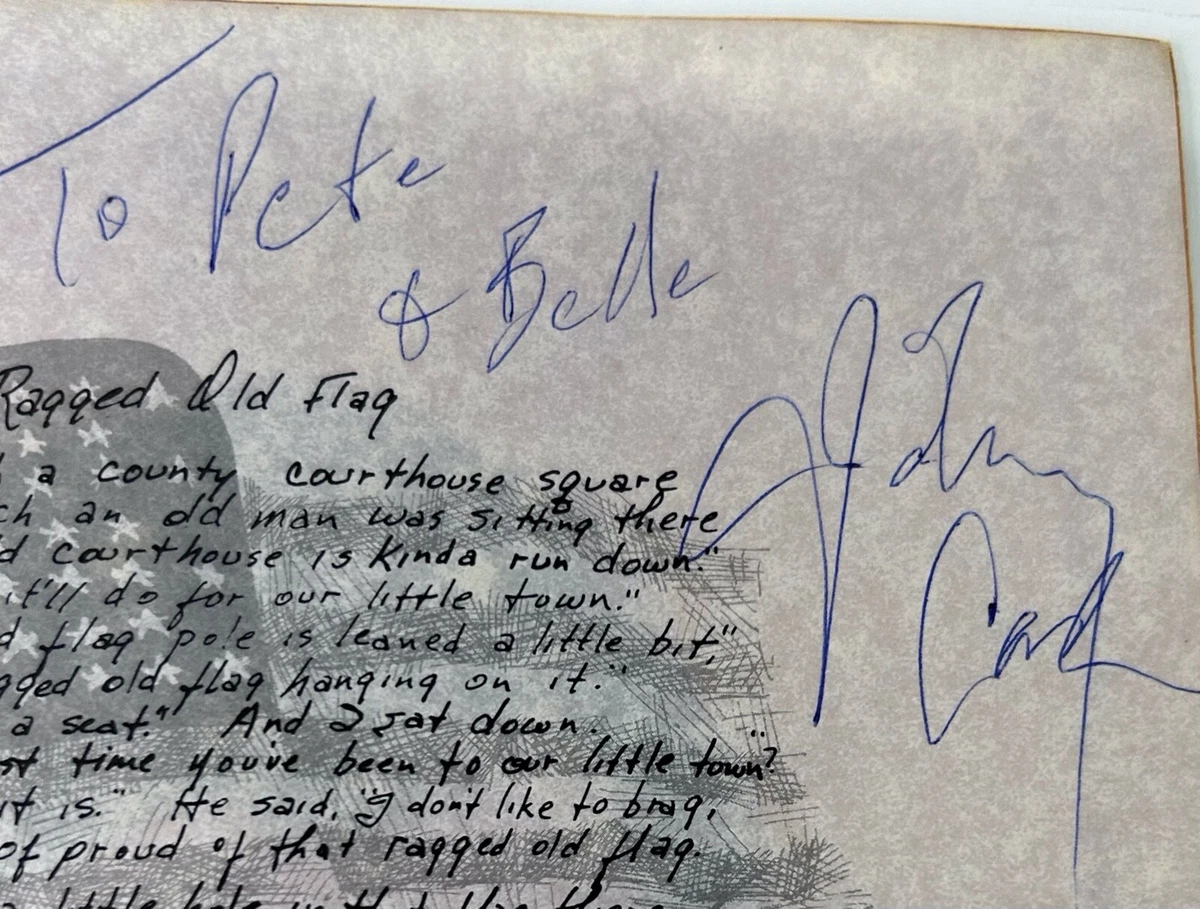 To Pete
& Belle
Johnny
Cash
Ragged Old Flag
a county courthouse square
ch an old man was sitting there
d courthouse is kinda run down."
it'll do for our little town."
d flag pole is leaned a little bit,"
gged old flag hanging on it."
a seat." And I sat down.
st time you've been to our little town?"
it is." He said, "I don't like to brag,
of proud of that ragged old flag.
little hole in that flag there